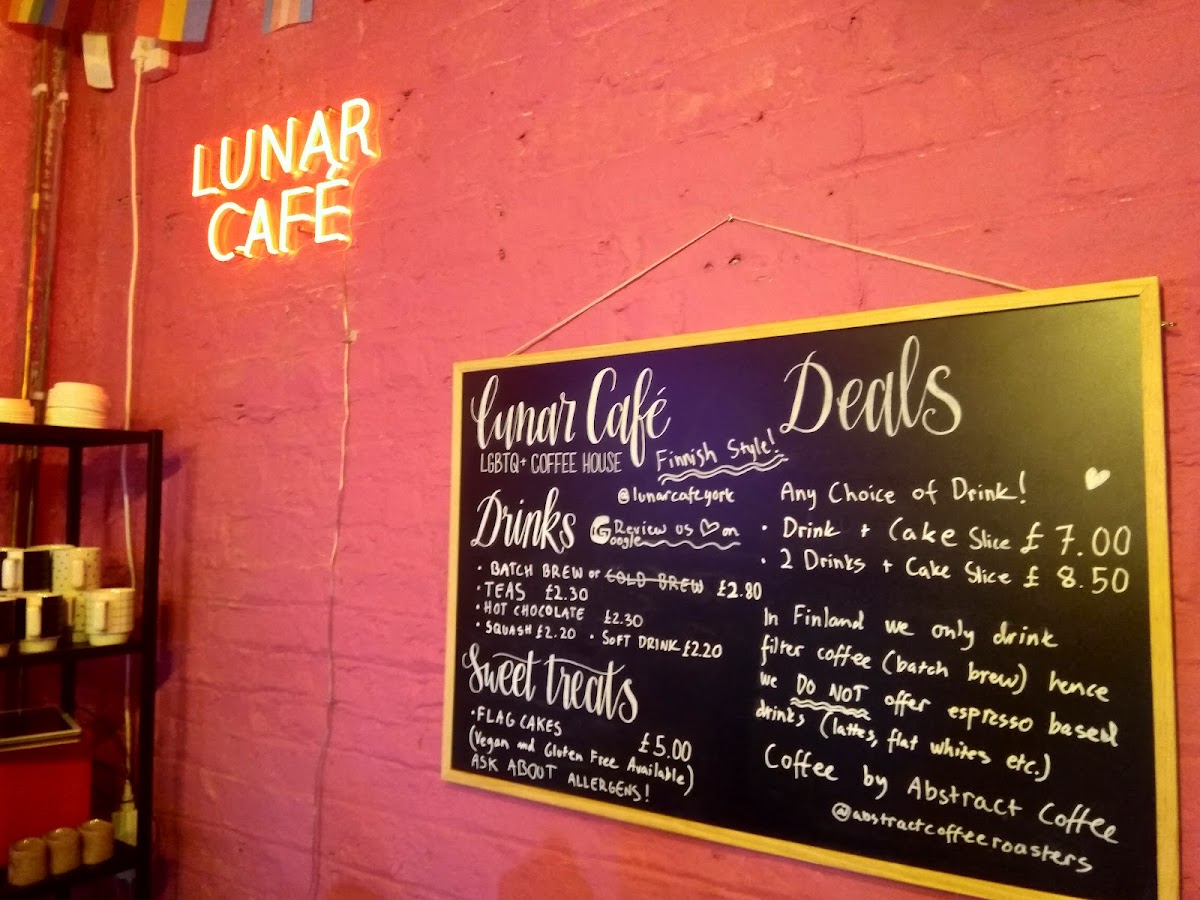 LUNAR
CAFÉ
Lunar Café
LGBTQ+ COFFEE HOUSE
Finnish Style!
@lunarcafeyork
Drinks
Review us ♡ on
Google
• BATCH BREW or COLD BREW £2.80
• TEAS £2.30
• HOT CHOCOLATE £2.30
• SQUASH £2.20 • SOFT DRINK £2.20
Sweet treats
• FLAG CAKES £5.00
(Vegan and Gluten Free Available)
ASK ABOUT ALLERGENS!
Deals
Any Choice of Drink!
• Drink + Cake Slice £ 7.00
• 2 Drinks + Cake Slice £ 8.50
In Finland we only drink
filter coffee (batch brew) hence
we DO NOT offer espresso based
drinks (lattes, flat whites etc.)
Coffee by Abstract Coffee
@abstractcoffeeroasters